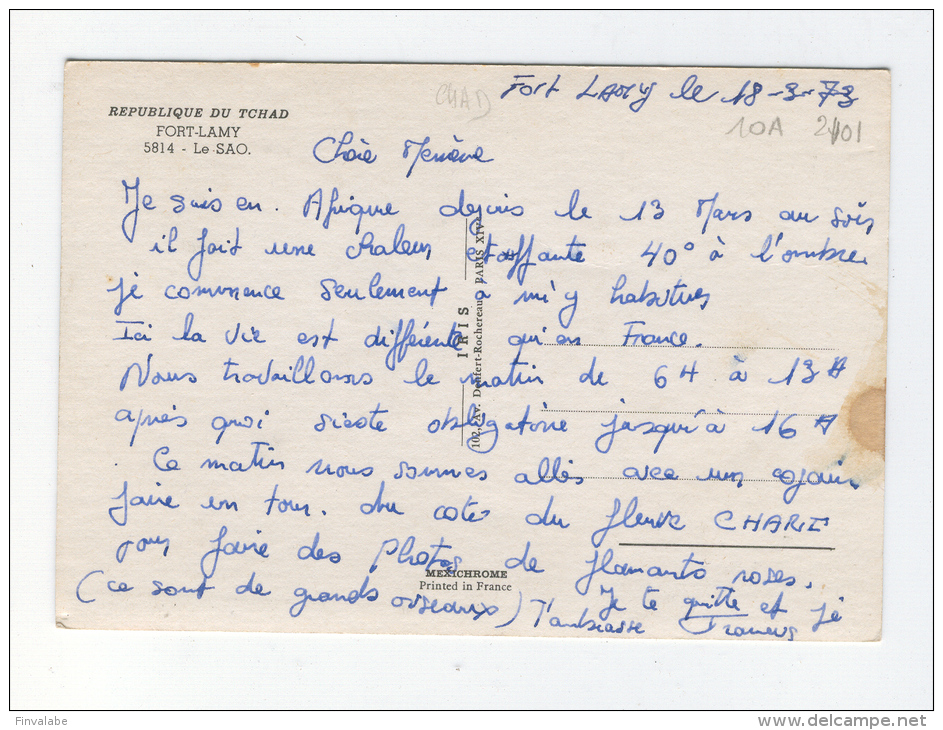 Fort LAMY le 18-3-73
CHAD
10A 2401
REPUBLIQUE DU TCHAD
FORT-LAMY
5814 - Le SAO.
Chère Mémène
Je suis en Afrique depuis le 13 Mars au soir,
il fait une chaleur étouffante 40° à l'ombre.
je commence seulement a m'y habituer
Ici la vie est différente qu'en France.
Nous travaillons le matin de 6H à 13H
après quoi sieste obligatoire jusqu'à 16H
Ce matin nous sommes allés avec un copain
faire un tour. du coté du fleuve CHARI
pour faire des Photos de flamants roses.
(ce sont de grands oiseaux) Je te quitte et je
t'embrasse Francis
IRIS
102, Av. Denfert-Rochereau, PARIS XIVe
MEXICHROME
Printed in France
Finvalabe
www.delcampe.net